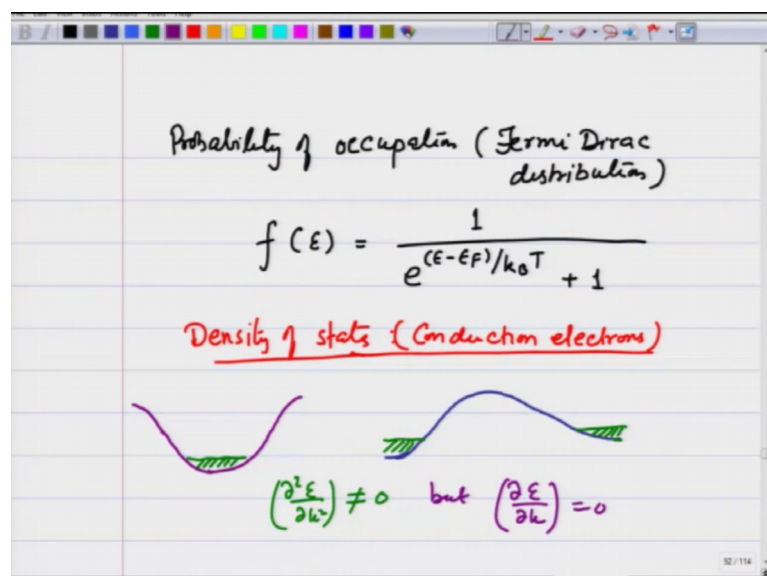 Probability of occupation (Fermi Dirac
distribution)
f(ε) = 1 / (e^{(ε-εF)/k_B T} + 1)
Density of states (Conduction electrons)
(∂²ε/∂k²) ≠ 0 but (∂ε/∂k) = 0
B I
52 / 114